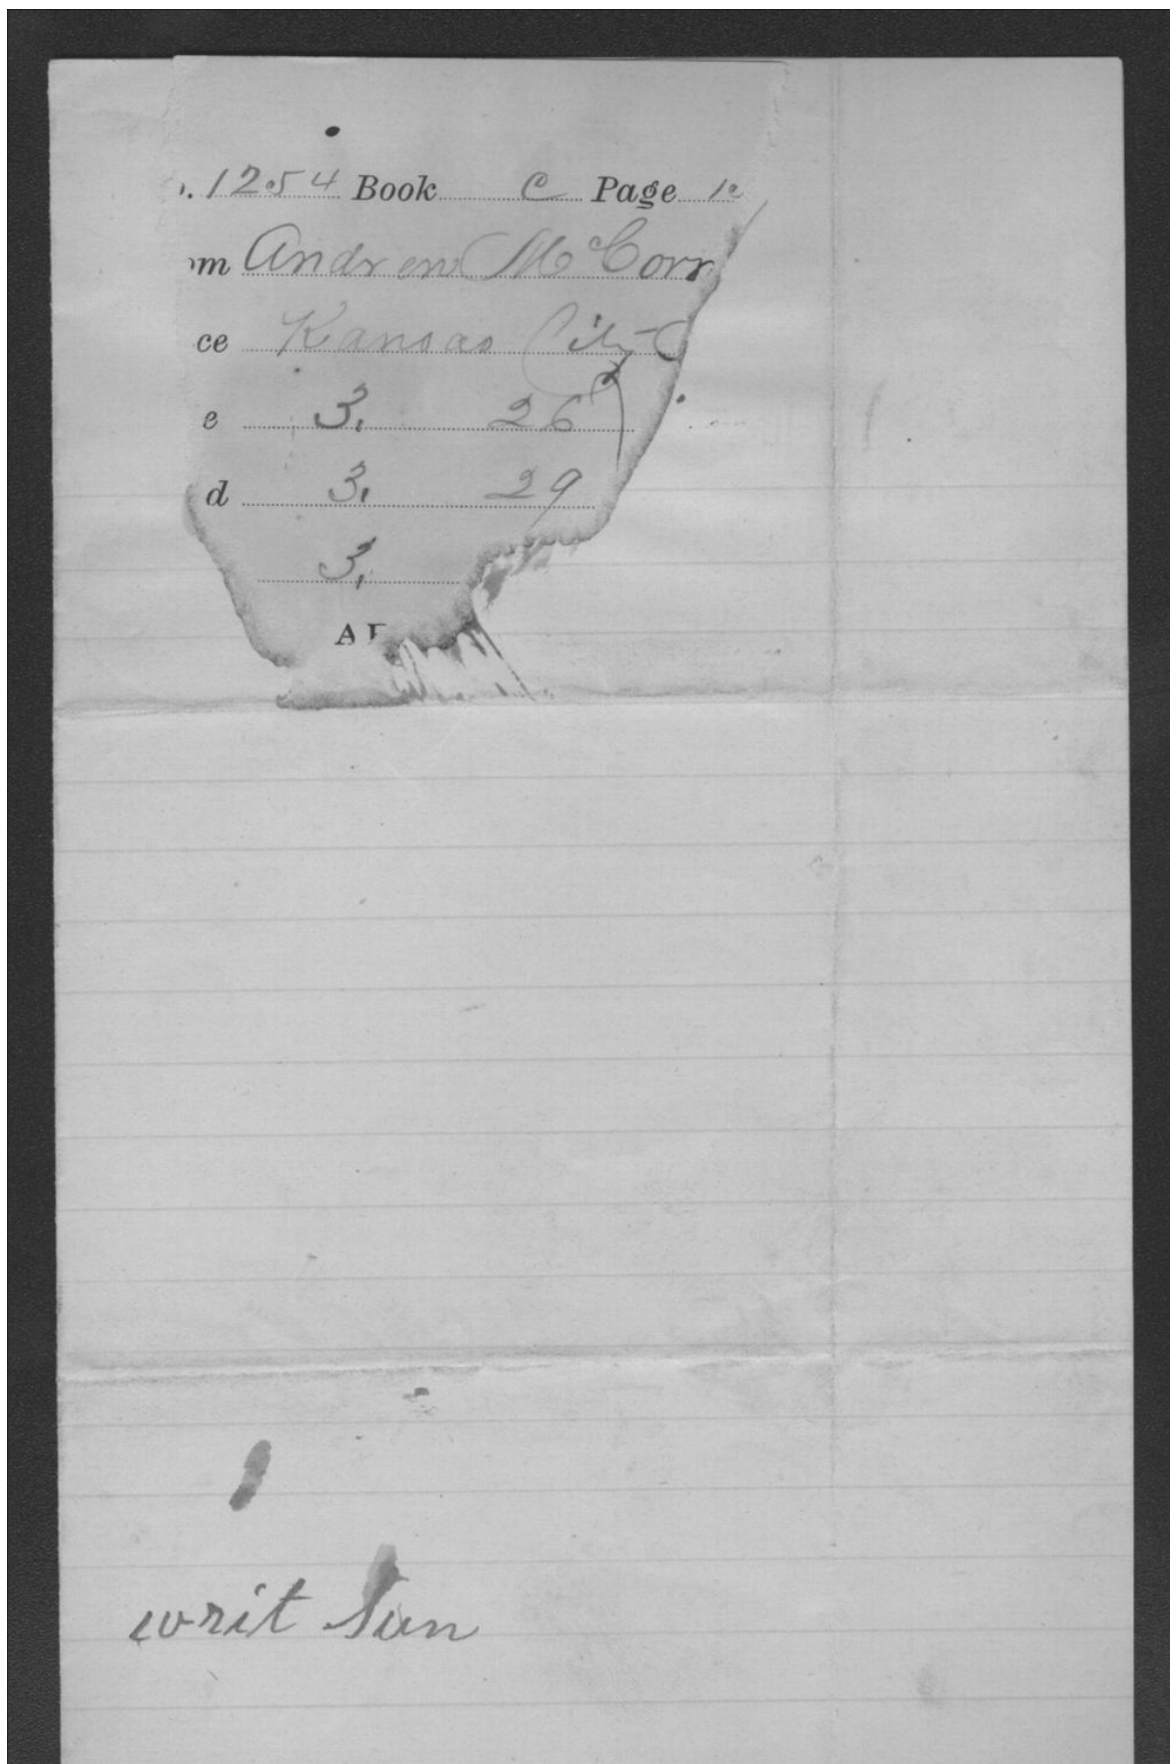 . 1254 Book C Page
om Andrew McCorr
ce Kansas City
e 3. 26
d 3. 29
3.
A
writ Sun